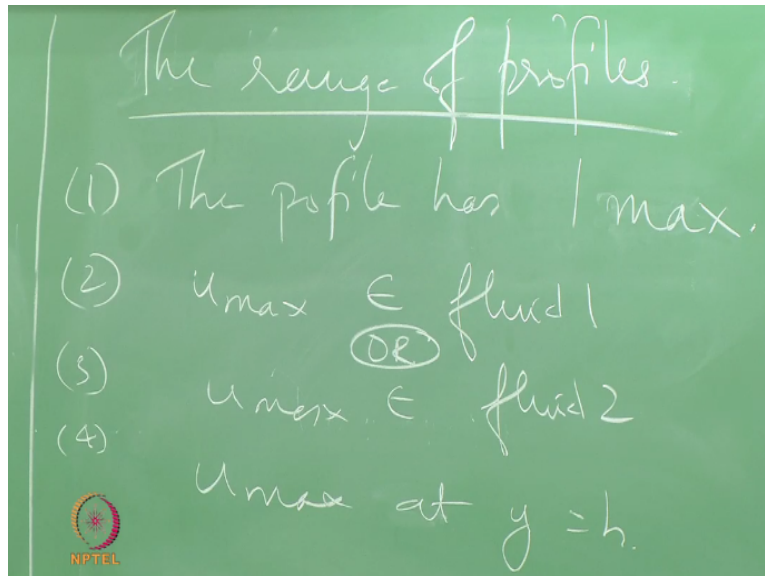 The range of profiles.
(1) The pofile has 1 max.
(2) umax ∈ fluid 1
OR
(3) umax ∈ fluid 2
(4) umax at y = h.
NPTEL